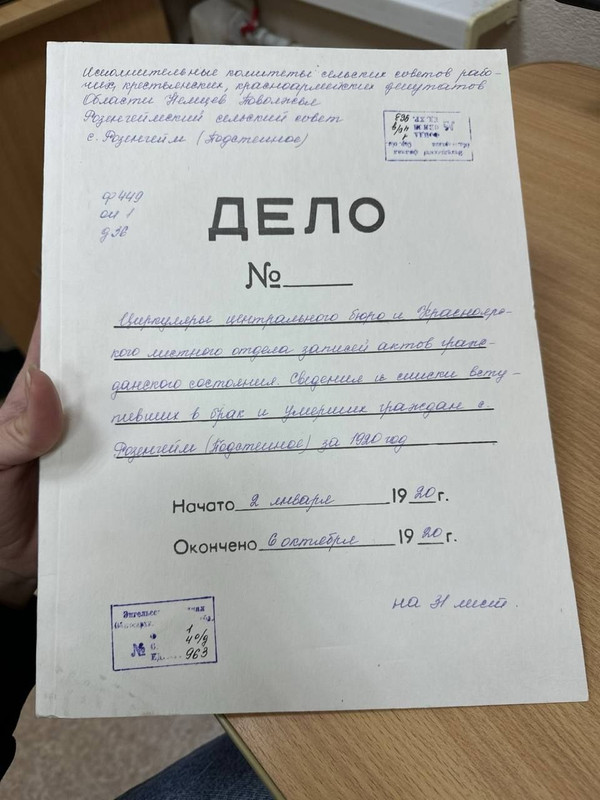 Исполнительные комитеты сельских советов рабо-
чих, крестьянских, красноармейских депутатов
Области Немцев Поволжья
Розенгеймский сельский совет
с. Розенгейм (Подстепное)
ф 449
оп 1
д 36
ДЕЛО
№
Циркуляры центрального бюро и Краснояр-
кого местного отдела записей актов граж-
данского состояния. Сведения и списки всту-
пивших в брак и умерших граждан с.
Розенгейм (Подстепное) за 1920 год
Начато 2 января 1920 г.
Окончено 6 октября 1920 г.
на 31 лист.
1
№
963